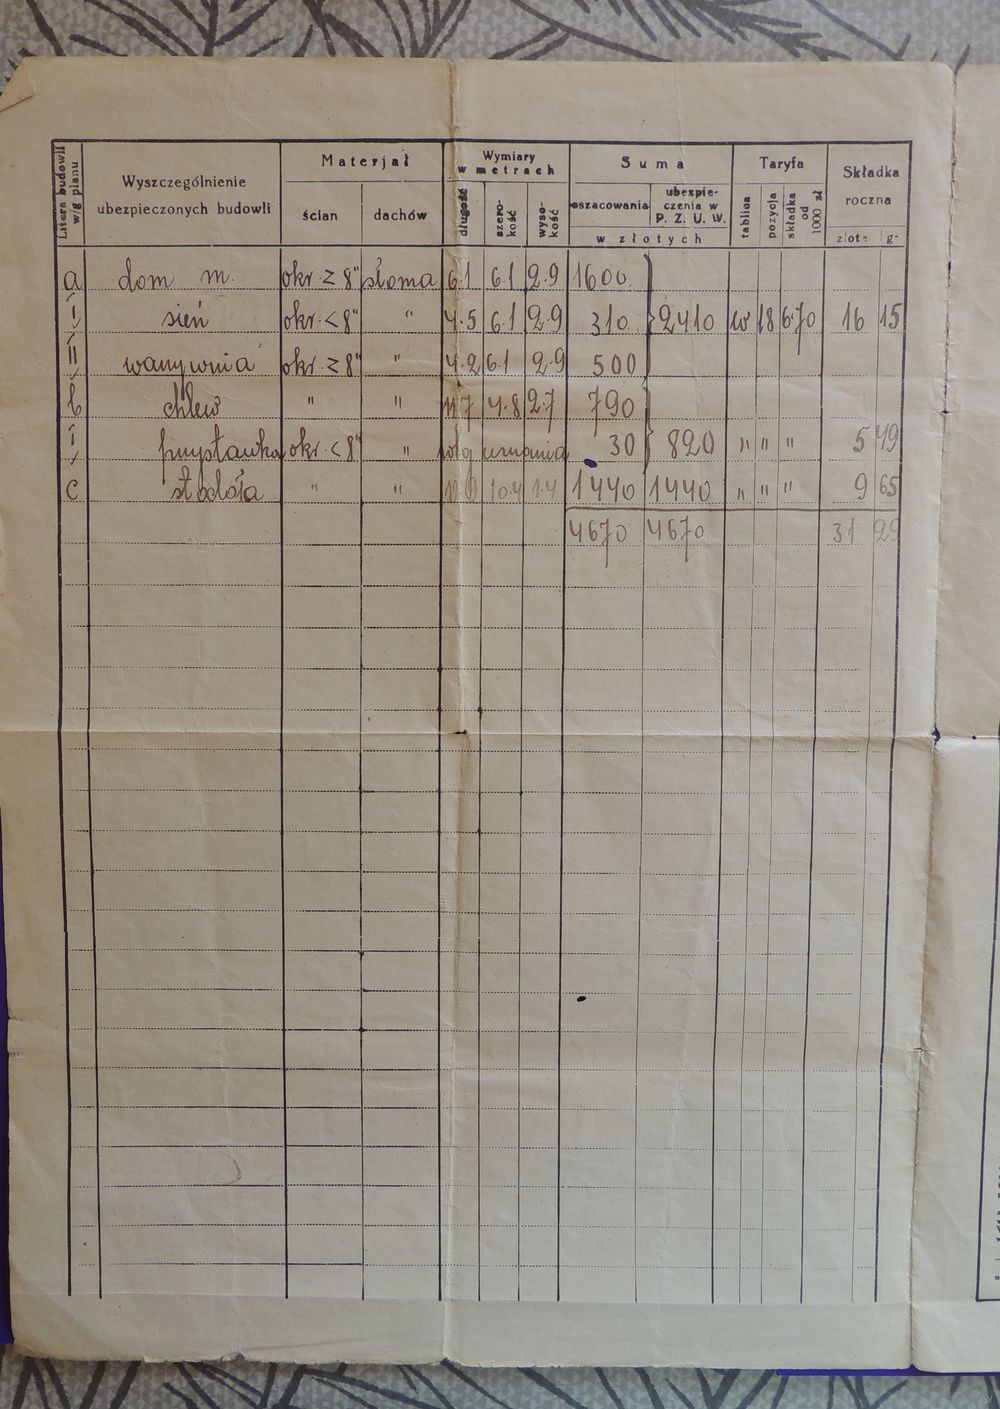 Litera budowli w/g planu | Wyszczególnienie ubezpieczonych budowli | Materjał | Wymiary w metrach | Suma | Taryfa | Składka roczna
ścian | dachów | długość | szerokość | wysokość | oszacowania | ubezpieczenia w P. Z. U. W. | tablica | pozycja | składka od 1000 zł
w złotych | złote | g
a dom m. okr. ≥ 8" słoma 6.1 6.1 2.9 1600
I sień okr. < 8" " 4.5 6.1 2.9 310 2410 18 6.70 16 15
II okr. ≥ 8" " 4.2 6.1 2.9 500
b chlew " " 4.8 2.7 790
I przystawka okr. < 8" " 30 820 " " " 5 49
c stodoła " " 10.4 1.4 1440 1440 " " " 9 65
4670 4670 31 29